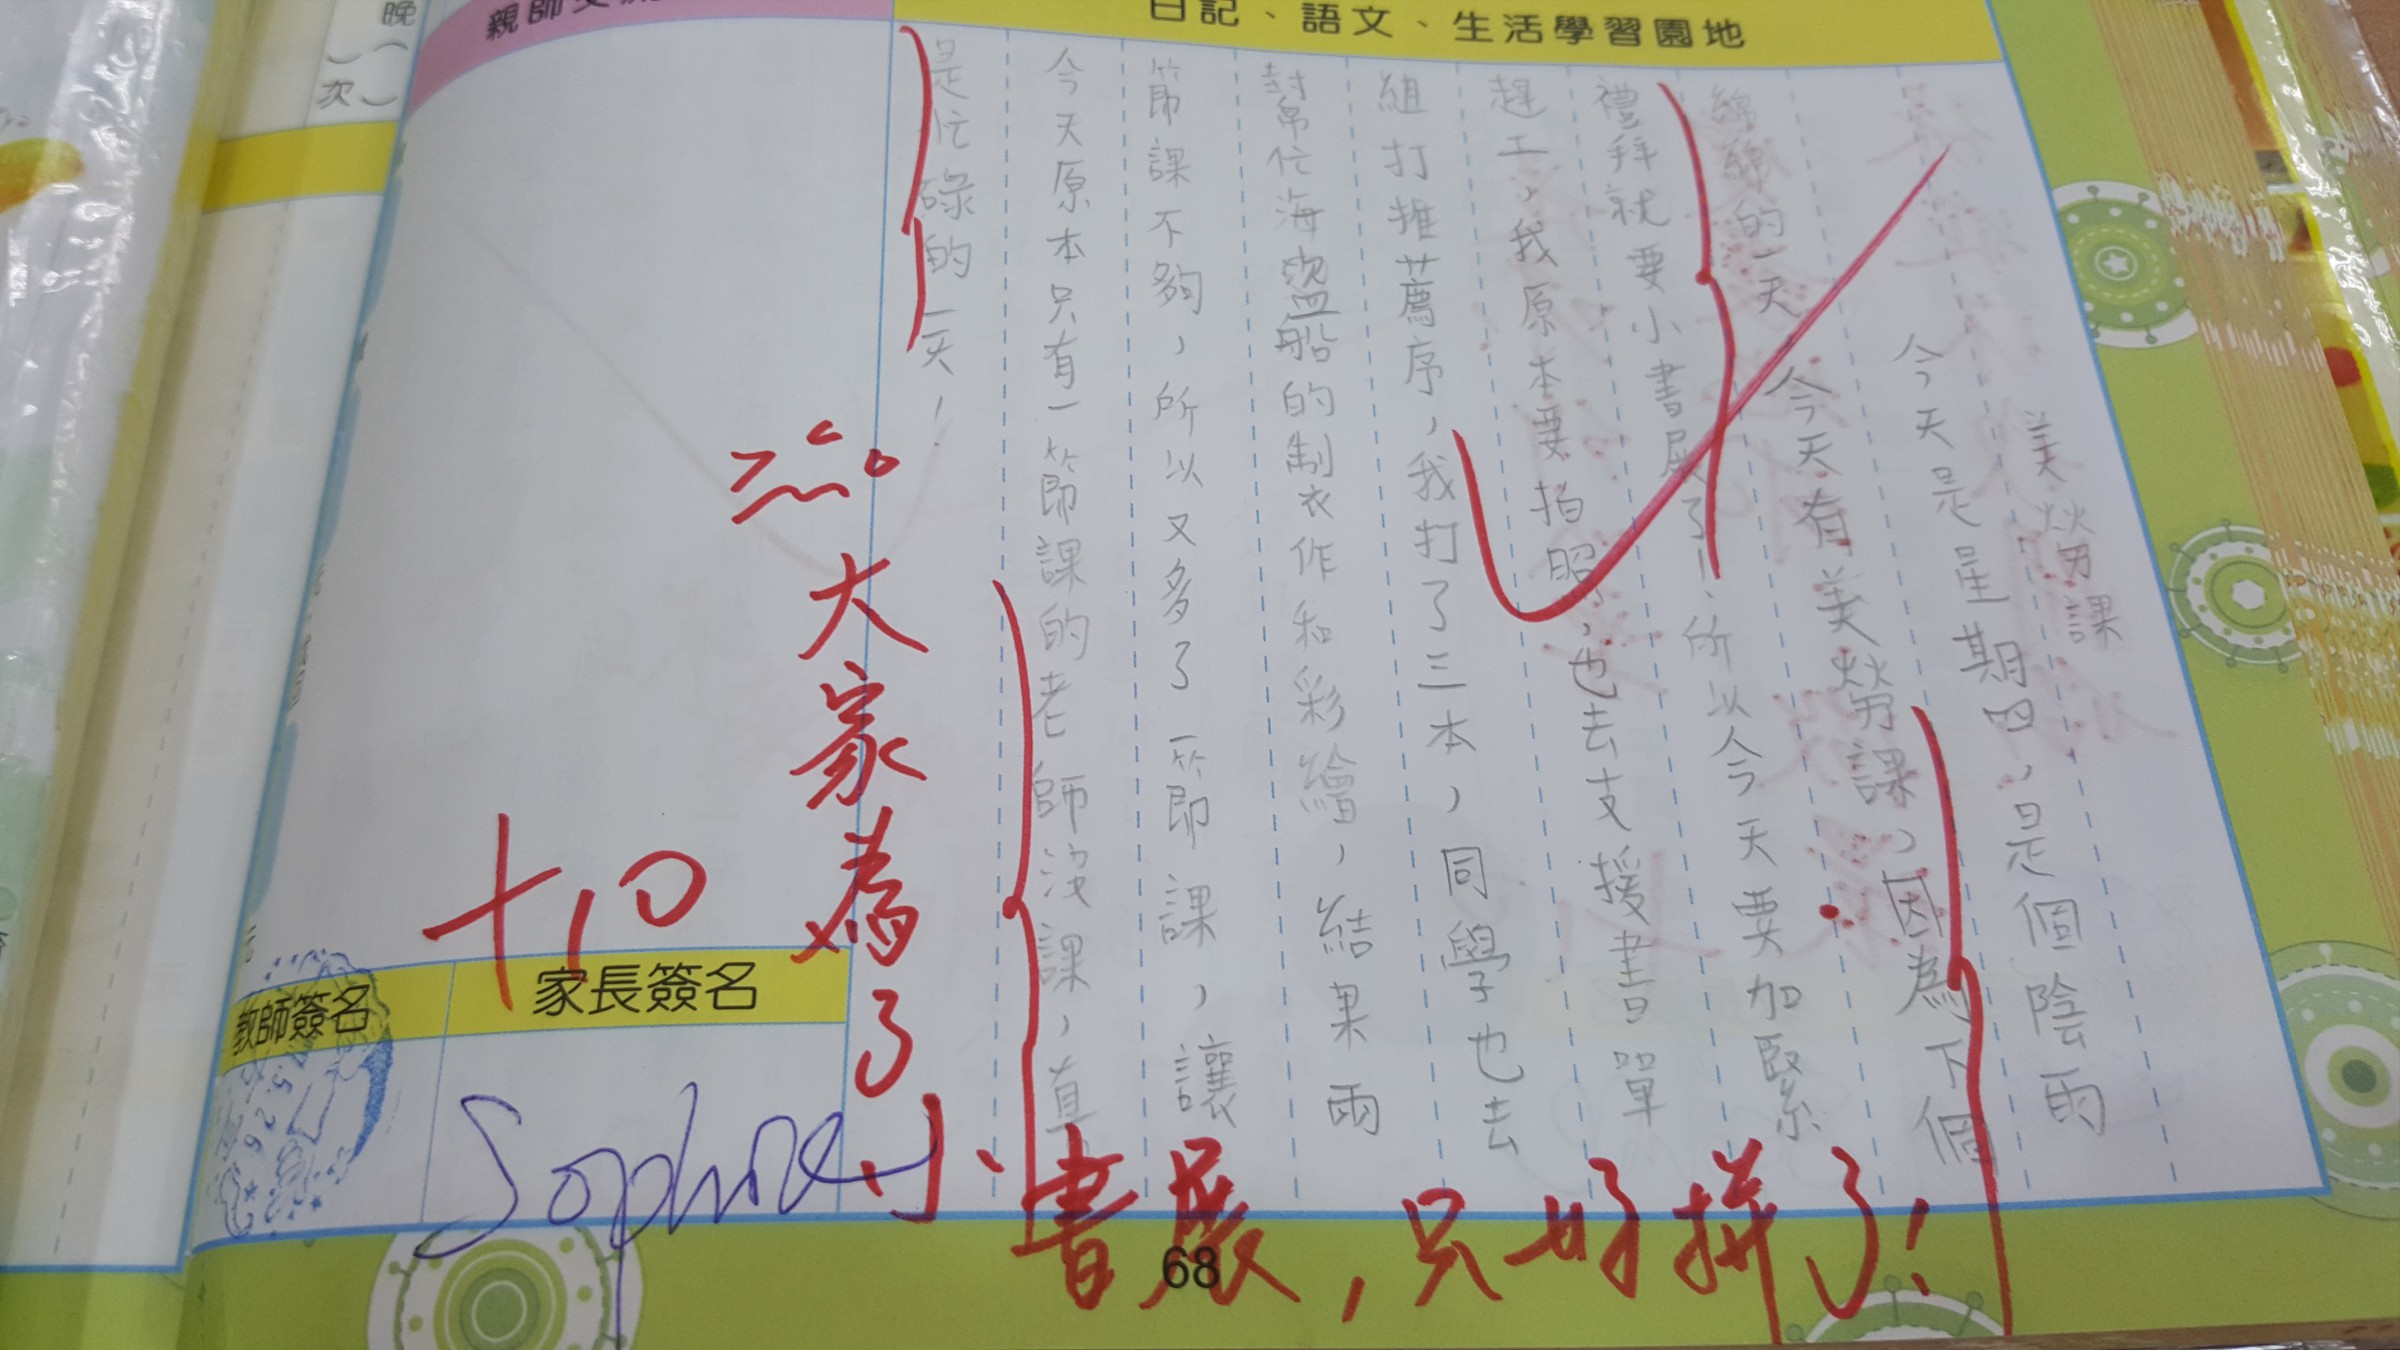 日記、語文、生活學習園地
美勞課
今天是星期四，是個陰雨
綿綿的一天。今天有美勞課，因為下個
禮拜就要小書展了！所以今天要加緊
趕工，我原本要拍照，也去支援書單
組打推薦序，我打了三本，同學也去
幫忙海盜船的制衣作和彩繪，結果兩
節課不夠，所以又多了一節課，讓
今天原本只有一節課的老師沒課，真
是忙碌的一天！
大家為了小書展，只好拼了！
+10
家長簽名
Sophie
教師簽名
68
晚
次